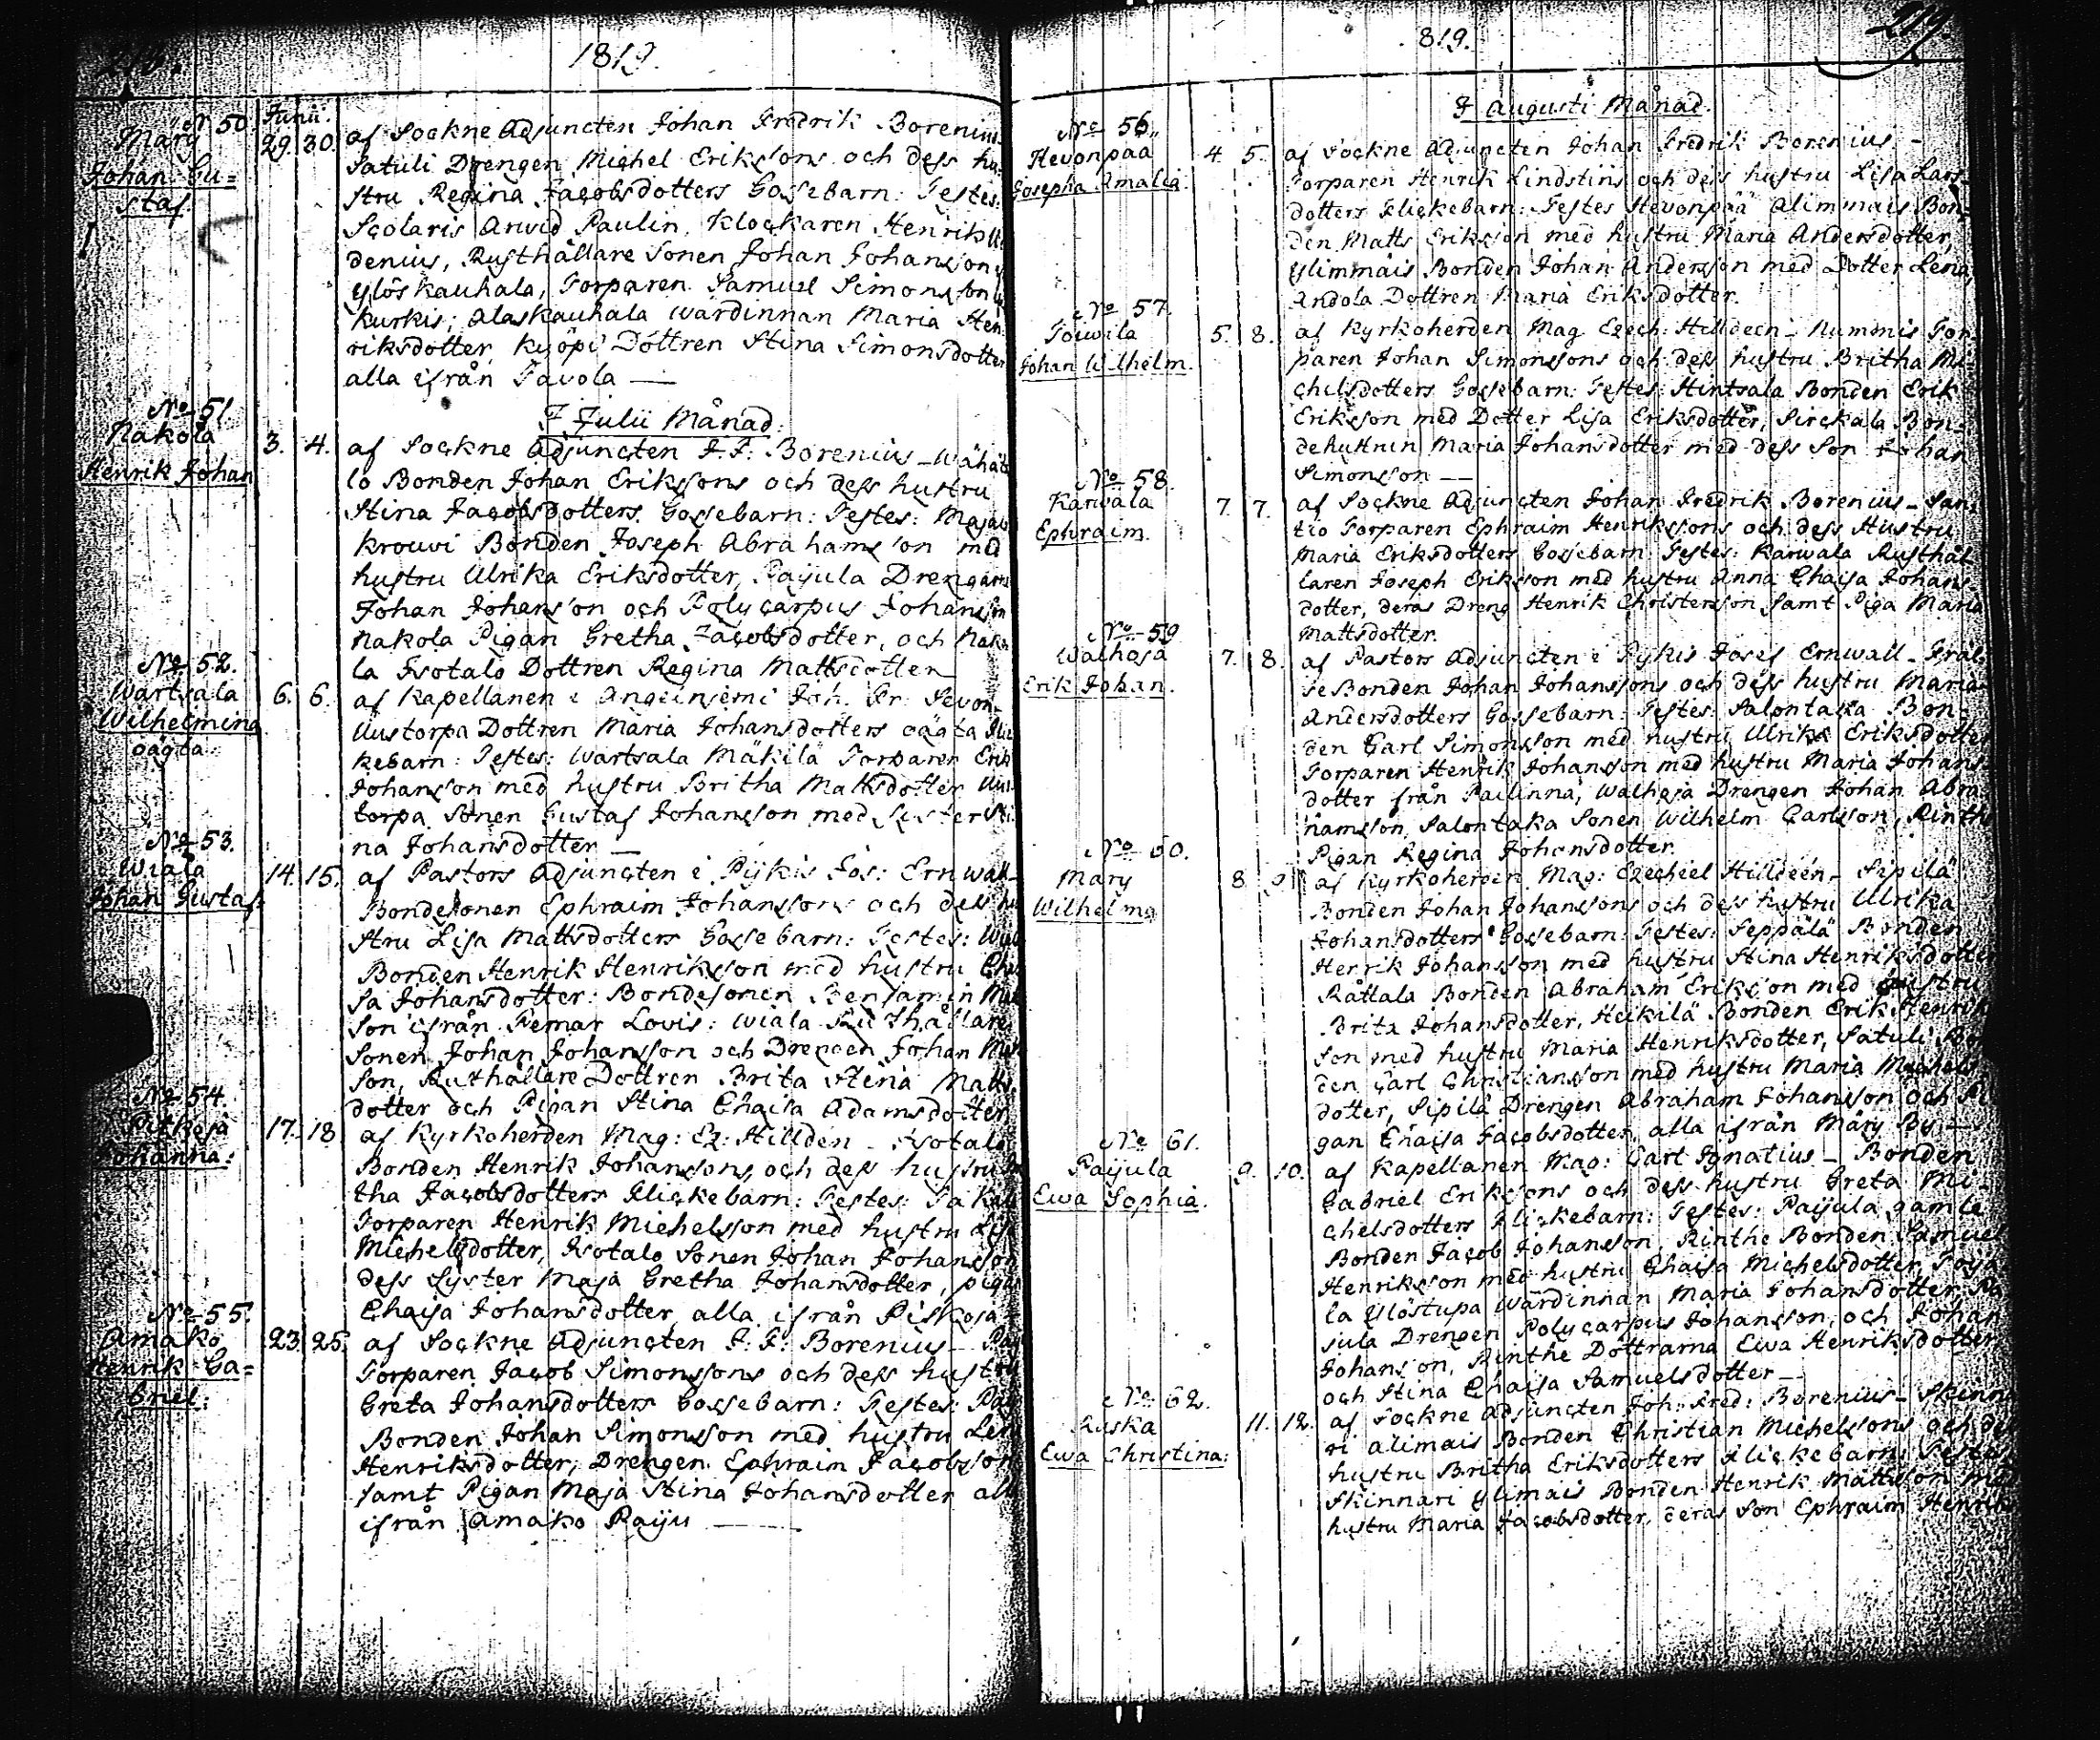 218.
1819.
N 50.
Märy
Johan Gu=
staf.
Junii.
29. 30. af Sockne Adjuncten Johan Fredrik Borenius
Satuli Drengen Michel Erikssons och dess hu=
stru Regina Jacobsdotters Gossebarn: Testes:
Scolaris Arvid Paulin, Klockaren Henrik
denius, Rusthållare Sonen Johan Johansson,
Ylöskauhala, Torparen Samuel Simonsson
Kurkis; Alaskauhala Wärdinnan Maria Hen
riksdotter, Kyöpi Dottren Stina Simonsdotter
alla ifrån Tavola —
I Julii Månad.
No 51.
Nakola
Henrik Johan
3. 4. af Sockne Adjuncten J. F. Borenius – Wähäta
lo Bonden Johan Erikssons och dess hustru
Stina Jacobsdotters Gossebarn: Testes:
Krouvi Bonden Joseph Abrahamsson med
hustru Ulrika Eriksdotter, Paijula Drengarne
Johan Johansson och Polycarpus Johansson
Nakola Pigan Gretha Jacobsdotter, och Nako
la Isotalo Dottren Regina Mattsdotter
No 52.
Wartsala
Wilhelmina
oägta.
6. 6. af Kapellanen i Angelniemi Joh. Fr. Sevon
Uustorpa Dottren Maria Johansdotters oägta Flic
kebarn: Testes: Wartsala Mäkilä Torparen Erik
Johansson med hustru Britha Mattsdotter Uus
torpa Sonen Gustaf Johansson med Syster Sti
na Johansdotter —
No 53.
Wiala
Johan Gustaf.
14. 15. af Pastors Adjuncten i Pijkis Jos: Ernwall –
Bondesonen Ephraim Johanssons och dess hu
stru Lisa Mattsdotters Gossebarn: Testes: Wiala
Bonden Henrik Henriksson med hustru Chai
sa Johansdotter: Bondesonen Benjamin Matts
son ifrån Pemar Lovis: Wiala Rusthållare
Sonen Johan Johansson och Drengen Johan Matts
son, Rusthållare Dottren Brita Stina Matts
dotter och Pigan Stina Chaisa Adamsdotter
No 54.
Pitkosa
Johanna:
17. 18. af Kyrkoherden Mag: Ez: Hillden – Isotalo
Bonden Henrik Johanssons, och dess hustru
tha Jacobsdotters Flickebarn: Testes:
Torparen Henrik Michelsson med hustru Lisa
Michelsdotter, Isotalo Sonen Johan Johansson
dess Syster Maja Gretha Johansdotter, pigan
Chaisa Johansdotter alla ifrån Pitkosa
No 55.
Amako
Henrik Ga=
briel:
23. 25. af Sockne Adjuncten J. F. Borenius – Paiju
Torparen Jacob Simonssons och dess hustru
Greta Johansdotters Gossebarn: Testes: Paiju
Bonden Johan Simonsson med hustru Lena
Henriksdotter, Drengen Ephraim Jacobsson
samt Pigan Maja Stina Johansdotter alla
ifrån Amako Paiju —
819.
219.
I Augusti Månad.
No 56.
Hevonpää
Josepha Amalia.
4. 5. af Sockne Adjuncten Johan Fredrik Borenius –
Torparen Henrik Lindstins och dess hustru Lisa Lars
dotters Flickebarn: Testes Hevonpää Alimmais Bon=
den Matts Eriksson med hustru Maria Andersdotter,
Ylimmäis Bonden Johan Andersson med Dotter Lena,
Andola Dottren Maria Eriksdotter.
No 57.
Toiwila
Johan Wilhelm.
5. 8. af Kyrkoherden Mag Ezech: Hilldeen – Nummis Tor
paren Johan Simonssons och dess hustru Britha Mi=
chelsdotters Gossebarn: Testes: Hintsala Bonden Erik
Eriksson med Dotter Lisa Eriksdotter, Sirckala Bon=
dehustrun Maria Johansdotter med dess Son Johan
Simonsson —
No 58.
Karwala
Ephraim.
7. 7. af Sockne Adjuncten Johan Fredrik Borenius – San
tio Torparen Ephraim Henrikssons och dess Hustru
Maria Eriksdotters Gossebarn: Testes: Karwala Rusthål
laren Joseph Eriksson med hustru Anna Chaisa Johans
dotter, deras Dreng Henrik Christersson samt Piga Maria
Mattsdotter.
No 59
Walhoja
Erik Johan.
7. 8. af Pastors Adjuncten i Pijkis Josef Ernwall – Fräl
se Bonden Johan Johanssons och dess hustru Maria
Andersdotters Gossebarn: Testes: Salontaka Bon=
den Carl Simonsson med hustru Ulrika Eriksdotter
Torparen Henrik Johansson med hustru Maria Johans
dotter från Pailinna, Walhoja Drengen Johan Abra
hamsson, Salontaka Sonen Wilhelm Carlsson, Rinthe
Pigan Regina Johansdotter.
No 60.
Märy
Wilhelm
8. 9. af Kyrkoherden Mag: Ezechiel Hilldeén – Sipilä
Bonden Johan Johanssons och dess hustru Ulrika
Johansdotters Gossebarn: Testes: Seppälä Bonden
Henrik Johansson med hustru Stina Henriksdotter
Råttala Bonden Abraham Eriksson med hustru
Brita Johansdotter, Heikilä Bonden Erik Henrik
son med hustru Maria Henriksdotter, Satuli Bon
den Carl Christiansson med hustru Maria Michels
dotter, Sipilä Drengen Abraham Johansson och Pi
gan Chaisa Jacobsdotter, alla ifrån Märy By –
No 61.
Paijula
Ewa Sophia.
9. 10. af Kapellanen Mag: Carl Ignatius – Bonden
Gabriel Erikssons och dess hustru Greta Mi=
chelsdotters Flickebarn: Testes: Paijula gamle
Bonden Jacob Johansson, Rinthe Bonden Samuel
Henriksson med hustru Chaisa Michelsdotter,
la Ylöstupa Wärdinnan Maria Johansdotter, Pai
jula Drengen Polycarpus Johansson, och Johan
Johansson, Rinthe Döttrarna Ewa Henriksdotter
och Stina Chaisa Samuelsdotter —
No 62.
Ruska
Ewa Christina:
11. 12. af Sockne Adjuncten Joh: Fred: Borenius – Skinna
ri Alimais Bonden Christian Michelssons och dess
hustru Britha Eriksdotters Flickebarn: Testes:
Skinnari Ylimais Bonden Henrik Mattsson med
hustru Maria Jacobsdotter, deras Son Ephraim Henriksson